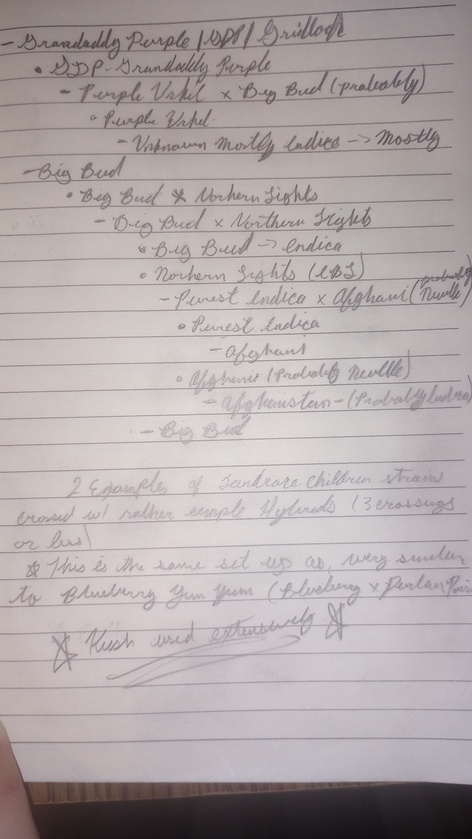 - Grandaddy Purple / GDP / Gridlock
• GDP - Grandaddy Purple
- Purple Urkel x Big Bud (probably)
• Purple Urkel
- Unknown Mostly Indica -> Mostly
- Big Bud
• Big Bud x Northern Lights
- Big Bud x Northern Lights
• Big Bud -> Indica
• Northern Lights
- Purest Indica x Afghani (probably Neville)
• Purest Indica
- Afghani
• Afghani (Probably Neville)
- Afghanistan - (Probably Indica)
- Big Bud
2 Examples of Landrace children strains
crossed w/ rather simple Hybrids (3 crossings
or less)
☆ This is the same set up as, very similar
to Blueberry Yum Yum (Blueberry x
☆ Kush used extensively ☆